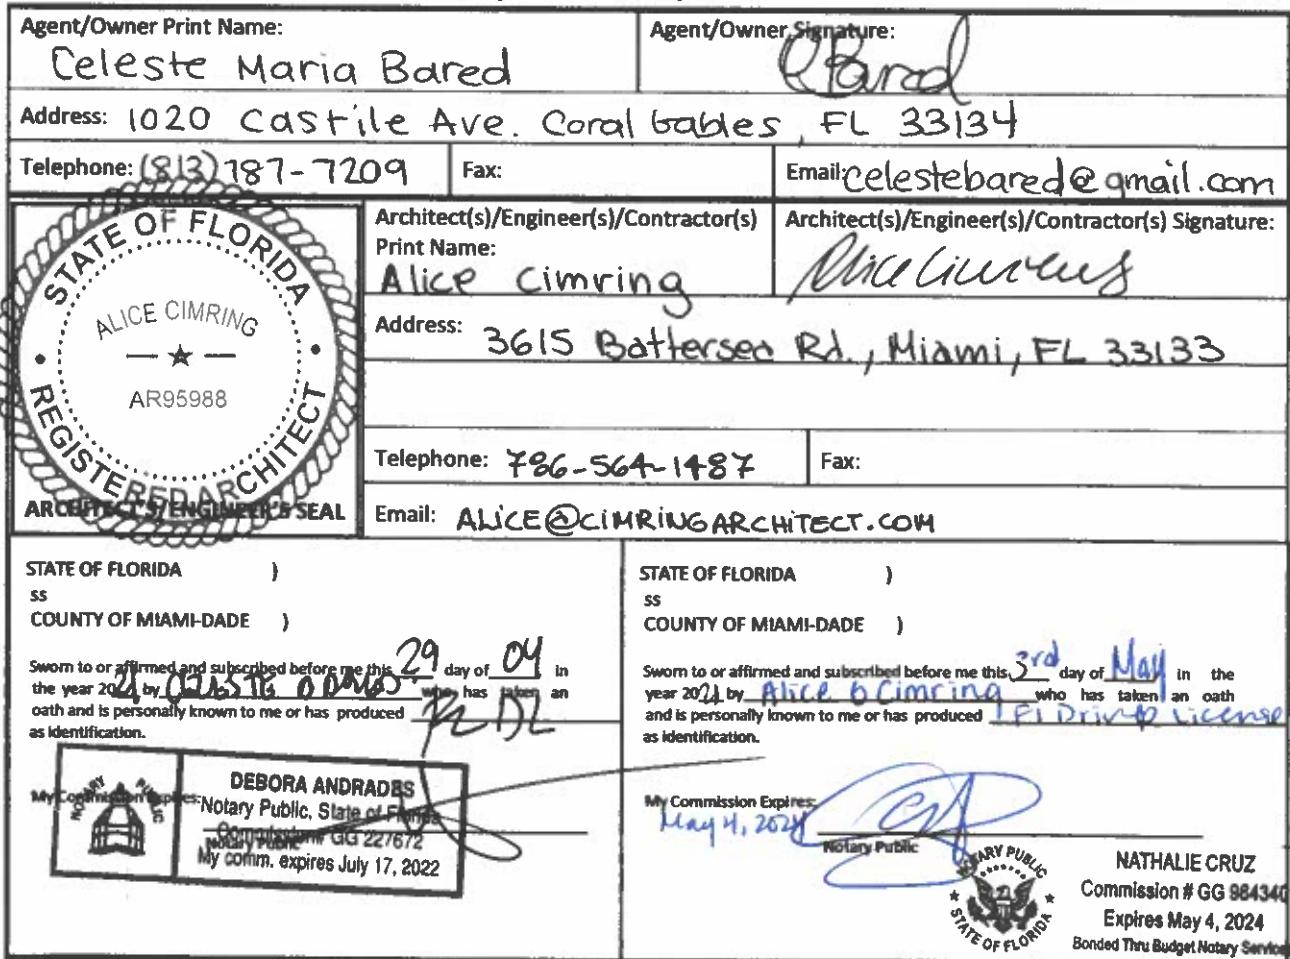 Agent/Owner Print Name:
Celeste Maria Bared
Agent/Owner Signature:
CBared
Address: 1020 Castile Ave. Coral Gables, FL 33134
Telephone: (813) 787-7209
Fax:
Email: celestebared@gmail.com
STATE OF FLORIDA
ALICE CIMRING
AR95988
REGISTERED ARCHITECT
ARCHITECT'S/ENGINEER'S SEAL
Architect(s)/Engineer(s)/Contractor(s)
Print Name:
Alice Cimring
Architect(s)/Engineer(s)/Contractor(s) Signature:
Alice Cimring
Address: 3615 Battersea Rd., Miami, FL 33133
Telephone: 786-564-1487
Fax:
Email: ALICE@CIMRINGARCHITECT.COM
STATE OF FLORIDA )
ss
COUNTY OF MIAMI-DADE )
Sworn to or affirmed and subscribed before me this 29 day of 04 in
the year 2021 by who has taken an
oath and is personally known to me or has produced FL DL
as identification.
My Commission Expires:
NOTARY PUBLIC
DEBORA ANDRADES
Notary Public, State of Florida
Commission# GG 227672
Notary Public
My comm. expires July 17, 2022
STATE OF FLORIDA )
ss
COUNTY OF MIAMI-DADE )
Sworn to or affirmed and subscribed before me this 3rd day of May in the
year 2021 by Alice Cimring who has taken an oath
and is personally known to me or has produced Fl Driver License
as identification.
My Commission Expires:
May 4, 2024
Notary Public
NOTARY PUBLIC
STATE OF FLORIDA
NATHALIE CRUZ
Commission # GG 984340
Expires May 4, 2024
Bonded Thru Budget Notary Services